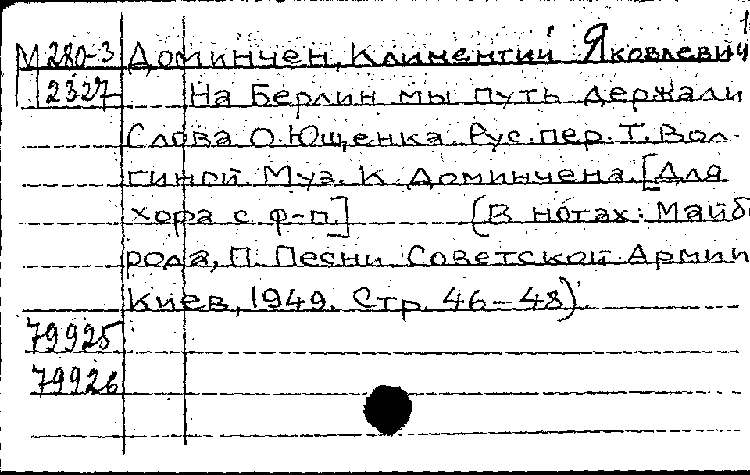 1
М 280-3 Доминчен, Климентий Яковлевич
2327 На Берлин мы путь держали
Слова О. Ющенка. Рус. пер. Т. Вол-
гиной. Муз. К. Доминчена. [Для
хора с ф-п.] (В нотах: Майбо
рода, П. Песни Советской Армии
Киев, 1949. Стр. 46-48).
79925
79926